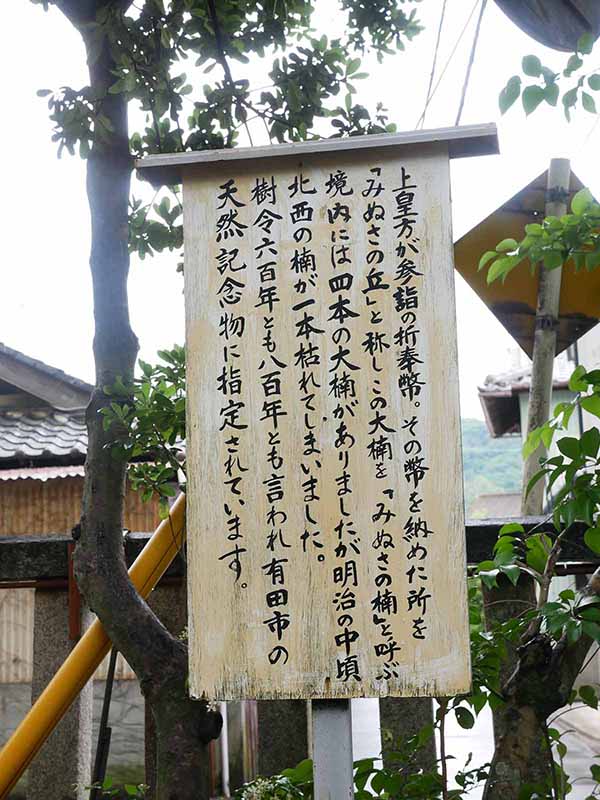 上皇方が参詣の折奉幣。その幣を納めた所を
「みぬさの丘」と称しこの大楠を「みぬさの楠」と呼ぶ
境内には四本の大楠がありましたが明治の中頃
北西の楠が一本枯れてしまいました。
樹令六百年とも八百年とも言われ有田市の
天然記念物に指定されています。